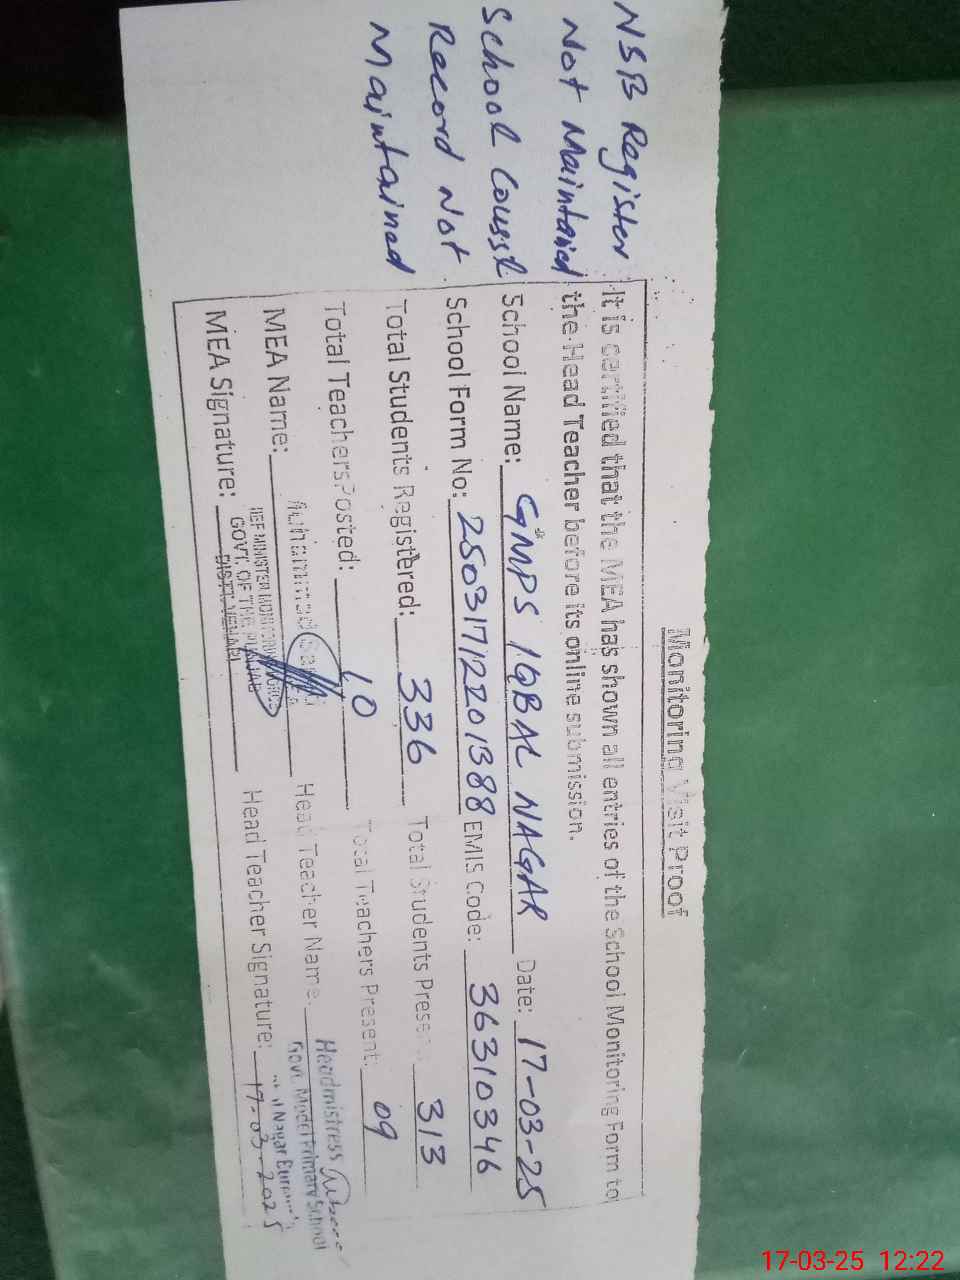 NSB Register
Not Maintained
School Council
Record Not
Maintained
Monitoring Visit Proof
It is certified that the MEA has shown all entries of the School Monitoring Form to
the Head Teacher before its online submission.
School Name: GMPS IQBAL NAGAR Date: 17-03-25
School Form No: 25031712201388 EMIS Code: 36310346
Total Students Registered: 336 Total Students Present: 313
Total Teachers Posted: 10 Total Teachers Present: 09
MEA Name: Muhammad Head Teacher Name: Headmistress
Govt. Model Primary School
Nagar
MEA Signature: GOVT. OF THE PUNJAB
DISTT. VEHARI
Head Teacher Signature: 17-03-2025
17-03-25 12:22